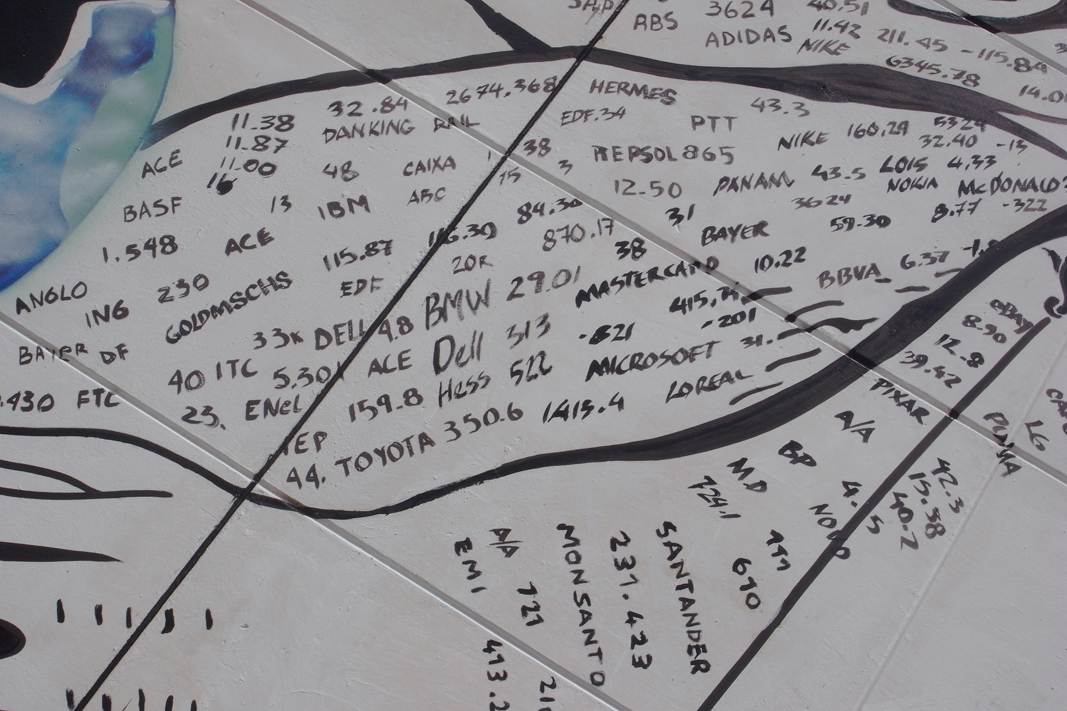 RBS 3624 40.51
ADIDAS 11.42 211.45 -115.84
NIKE 6345.78
14.0
32.84 2674.368 HERMES 43.3
11.38 DANKING RAIL EDF.34 PTT NIKE 160.29 5324
11.87 32.40 -13
ACE 11.00 48 CAIXA 38 REPSOL 865 LOIS 4.33
BASF 13 IBM ABC 15 3 12.50 PANAM 43.5 NOKIA McDONALD
1.548 ACE 115.87 116.30 84.30 31 3624 8.77 -322
ANGLO 230 GOLDMSCHS EDF 20R 870.17 BAYER 59.30
ING 33K DELL 48 BMW 29.01 38 10.22 BBVA 6.37
BAYER DF MASTERCARD
40 ITC 5.30 ACE Dell 313 -821 415.
.430 FTC 23, ENEL 159.8 Hess 522 MICROSOFT -201 31.
YEP TOYOTA 350.6 1413.4 LOREAL
44.
eBay
8.90
12.8
39.42
PIXAR
A/A
BP
M.D
724.1
NOVO
4. 5
42.3
15.38
40.2
LG
SANTANDER
231.423
MONSANTO
A/A 721
EMI
413.2
610